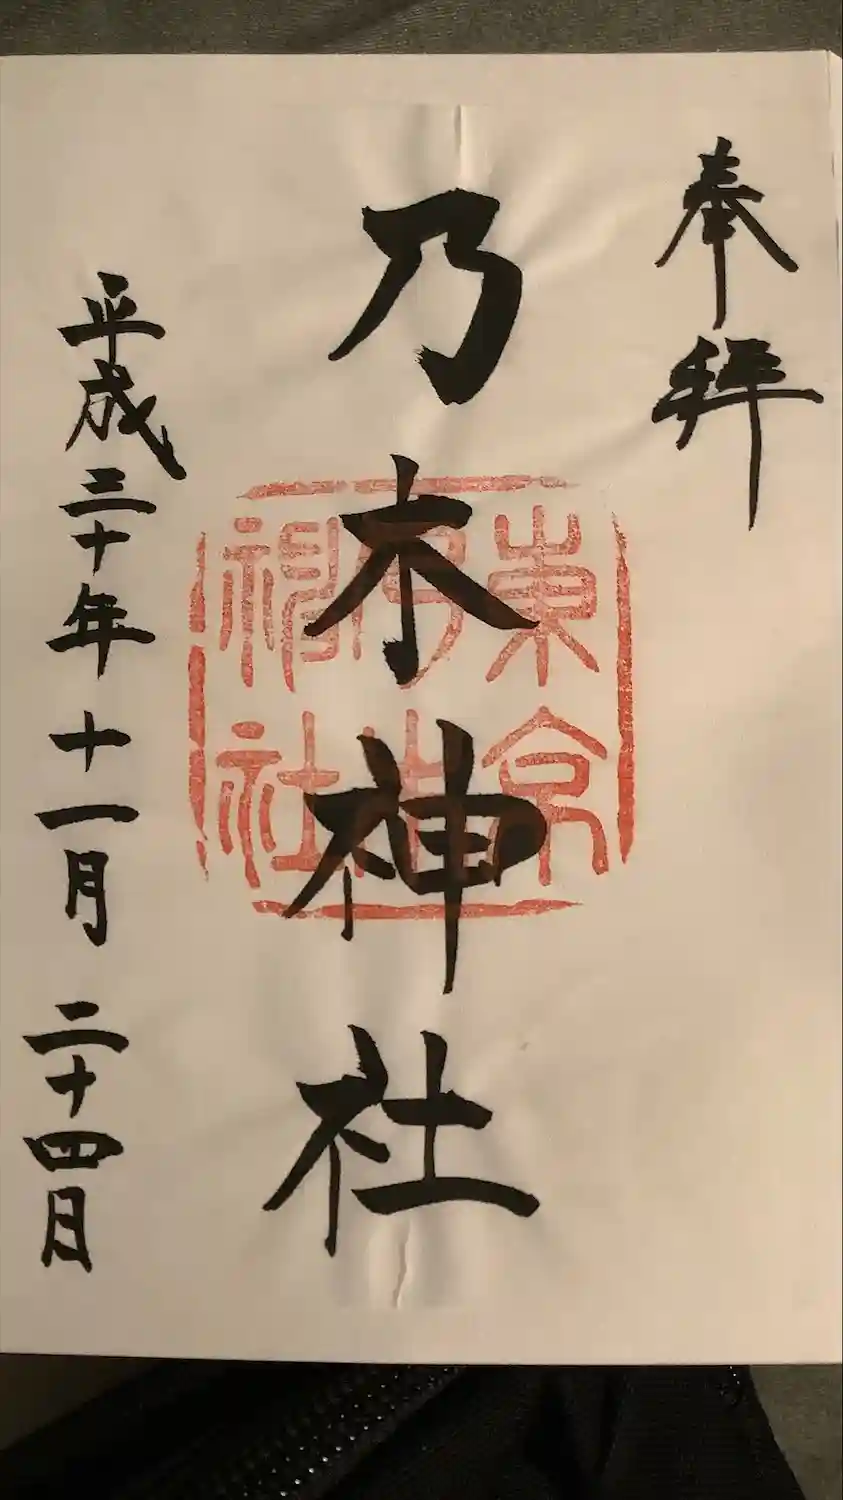 奉拝
乃木神社
東京
乃木
神社
平成三十年十一月二十四日